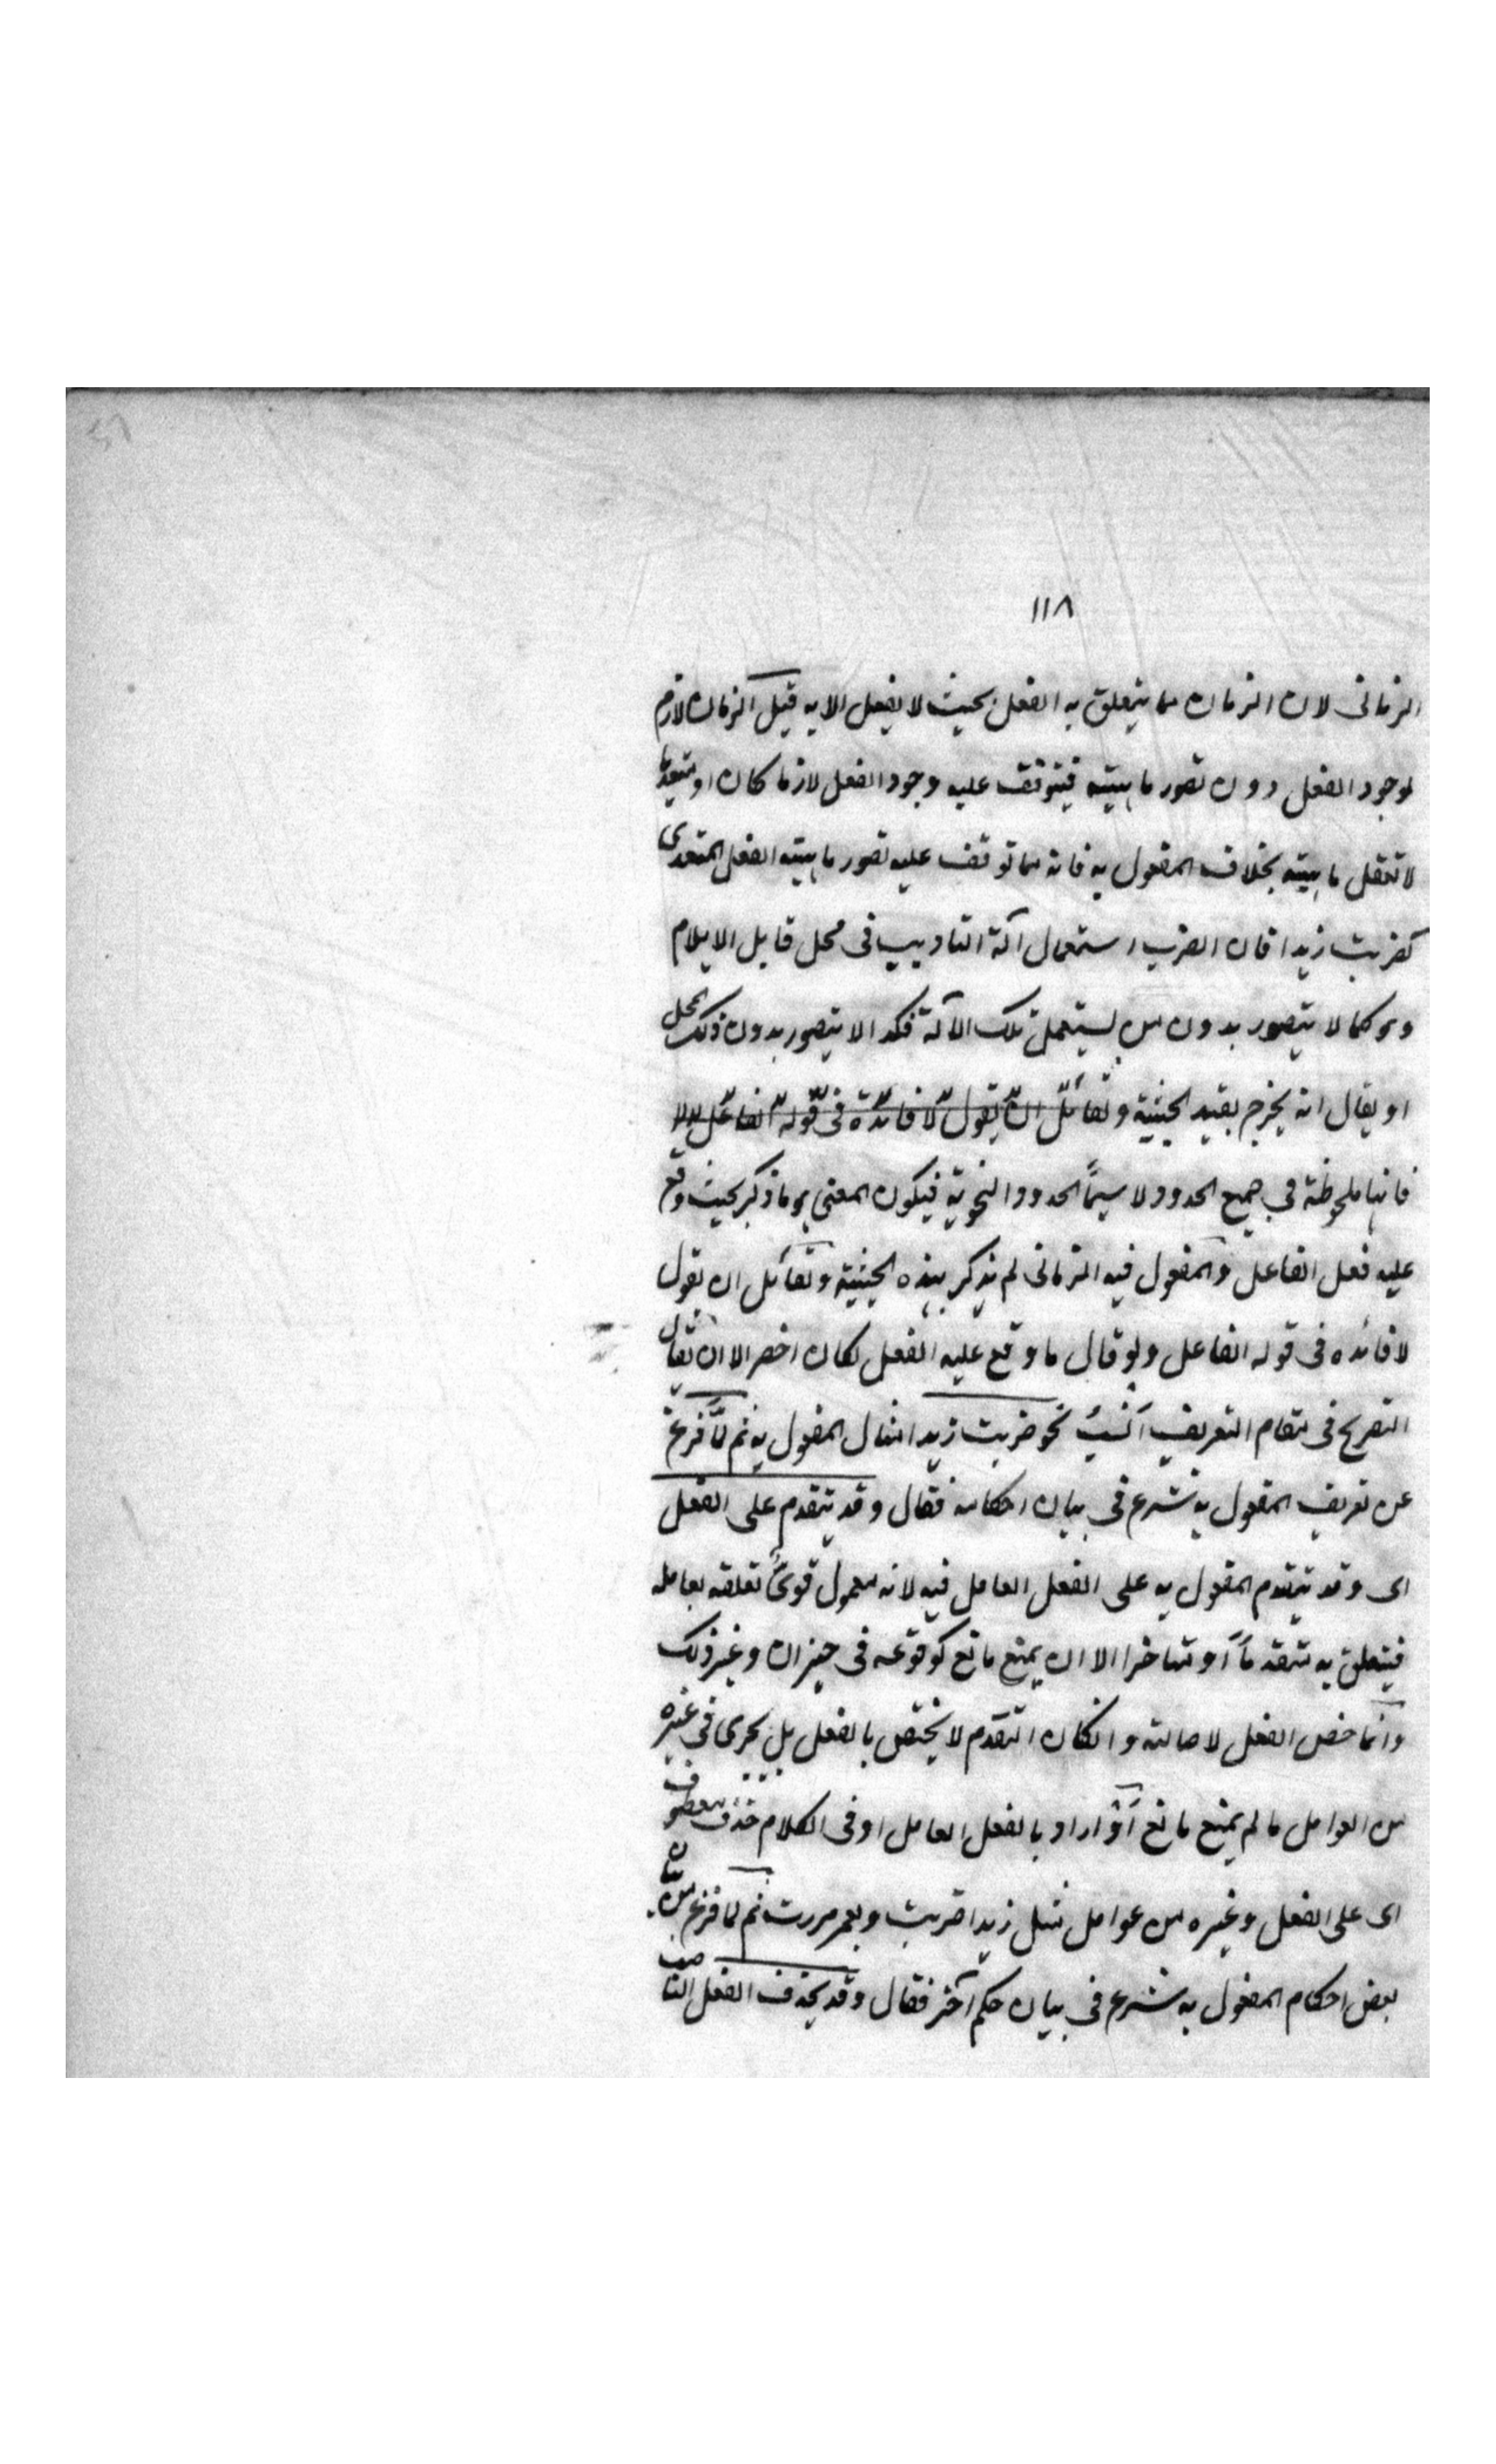 ١١٨
الزمانى لان الزمان مما يتعلق به الفعل بحيث لا يفعل الا به قيل الزمان لازم
لوجود الفعل دون تصور ماهيته فيتوقف عليه وجود الفعل لازما كان او متعديا
لا تعقل ماهيته بخلاف المفعول به فانه مما توقف عليه تصور ماهيته الفعل المتعدى
كضربت زيدا فان الضرب استعمال آلة التاديب فى محل قابل الايلام
وهو كما لا يتصور بدون من يستعمل تلك الآلة فكذا لا يتصور بدون ذلك المحل
او يقال انه يخرج بقيد الحيثية ولقائل ان يقول لا فائدة فى قوله الفاعل
فانها ملحوظة فى جميع الحدود لا سيما الحدود النحوية فيكون المعنى هو ما ذكر بحيث وقع
عليه فعل الفاعل والمفعول فيه الزمانى لم يذكر بهذه الحيثية ولقائل ان تقول
لا فائده فى قوله الفاعل ولو قال ما وقع عليه الفعل لكان اخصر الا ان يقال
التصريح فى مقام التعريف انسب نحو ضربت زيدا مثال المفعول به ثم لما فرغ
عن تعريف المفعول به شرع فى بيان احكامه فقال وقد يتقدم على الفعل
اى وقد يتقدم المفعول به على الفعل العامل فيه لانه معمول قوى تعلقه بعامله
فيتعلق به متقدما او متاخرا الا ان يمنع مانع كوقوعه فى حيز ان وغير ذلك
وانما خص الفعل لاصالته وانكان التقدم لا يختص بالفعل بل يجرى فى غيره
من العوامل ما لم يمنع مانع او اراد بالفعل العامل او فى الكلام حذف معطوف
اى على الفعل وغيره من عوامل مثل زيدا ضربت وبعمر مررت ثم لما فرغ من بيان
بعض احكام المفعول به شرع فى بيان حكم آخر فقال وقد يحذف الفعل الناصب